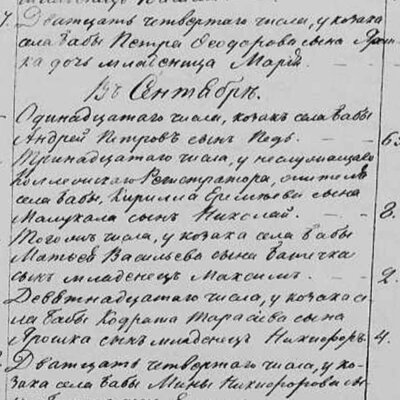 7. Дватцать четвертаго числа, у козака
села Бабы Петра Ѳеодорова сына
ка дочь младеница Марія
Въ Сентябрѣ.
Одинадцатаго числа, козакъ села Бабы
Андрей Петровъ сынъ 63
Тринадцатаго числа, у неслужащаго
Коллежскаго Регистратора,
села Бабы, Кирилла Еремѣева сына
сынъ Николай. 8.
Того жъ числа, у козака села Бабы
Матвея Васильева сына
сынъ младенецъ Максимъ. 2.
Девятнадцатаго числа, у козака се-
ла Бабы Кодрата Тарасіева сына
Ярошка сынъ младенецъ Никифоръ 4.
Дватцать четвертаго числа, у ко-
зака села Бабы Мины Никифорова сы-